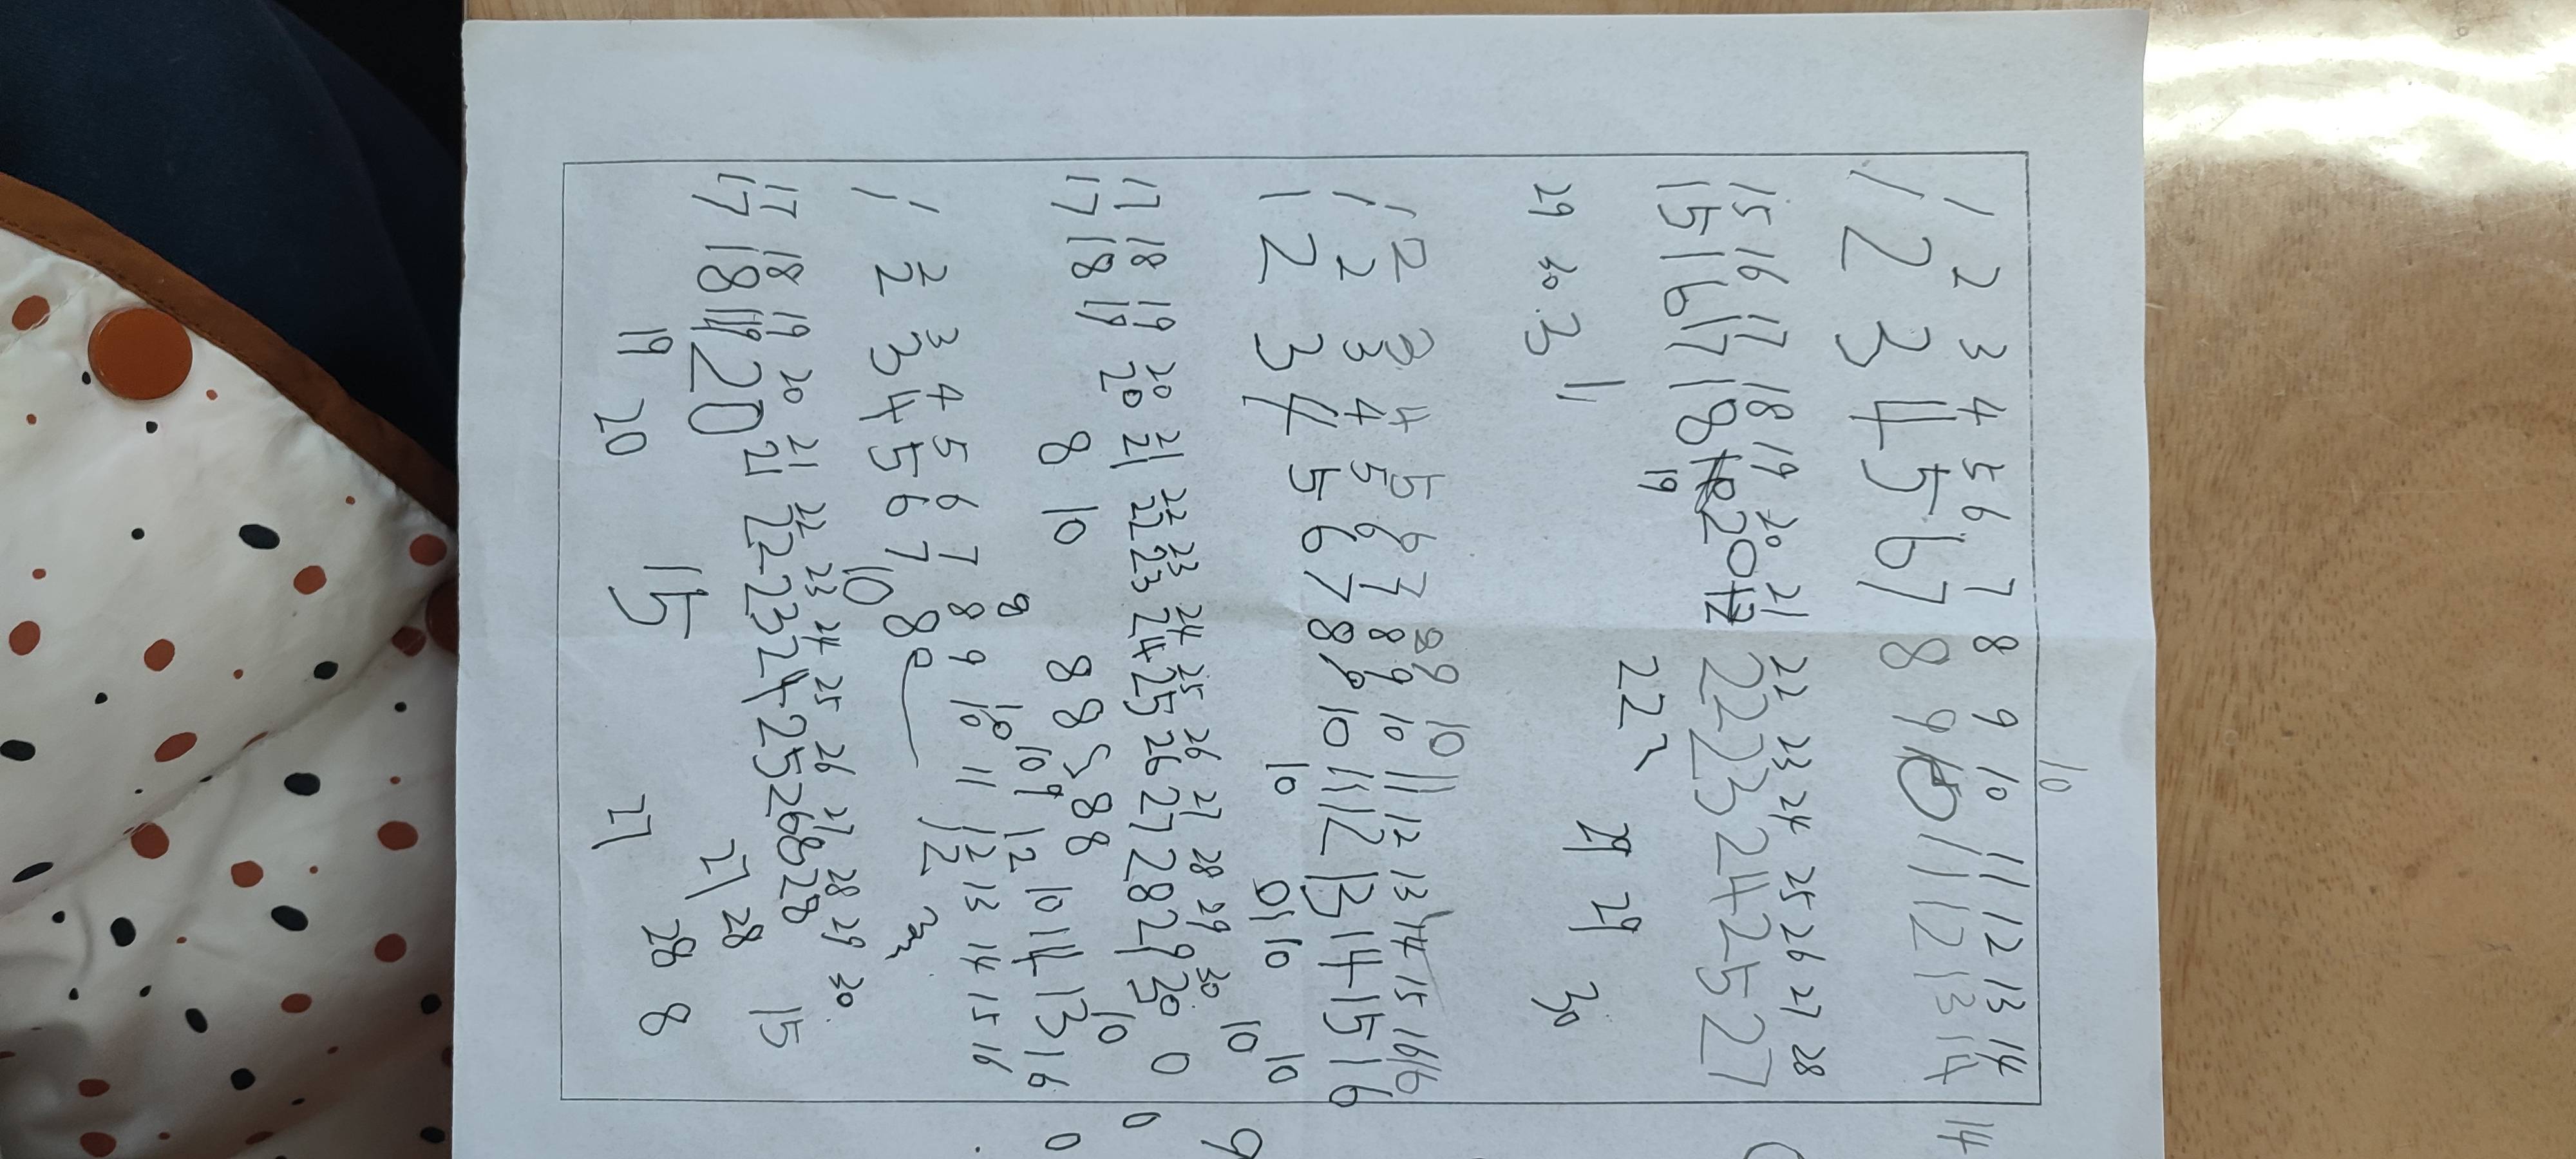 10
1 2 3 4 5 6 7 8 9 10 11 12 13 14
1 2 3 4 5 6 7 8 9 10 11 12 13 14 14
15 16 17 18 19 20 21 22 23 24 25 26 27 28
15 16 17 18 20 22 23 24 25 27
19 22
29 29 30
29 30 3 1
1 2 3 4 5 6 7 8 9 10 11 12 13 14 15 16 16
1 2 3 4 5 6 7 8 9 10 11 12 13 14 15 16
1 2 3 4 5 6 7 8 9
10 10 10 10 10 9
17 18 19 20 21 22 23 24 25 26 27 28 29 30
17 18 19 20 21 22 23 24 25 26 27 28 29 30 0 0
8 10 8 8 8 8 10 0
9 10 10 9 12 10 14 13 16
1 2 3 4 5 6 7 8 9 10 11 12 13 14 15 16
1 2 3 4 5 6 7 8 12
10
17 18 19 20 21 22 23 24 25 26 27 28 29 30
17 18 19 20 21 22 23 24 25 26 8 28 15
27 28
19 20 15 27 28 8